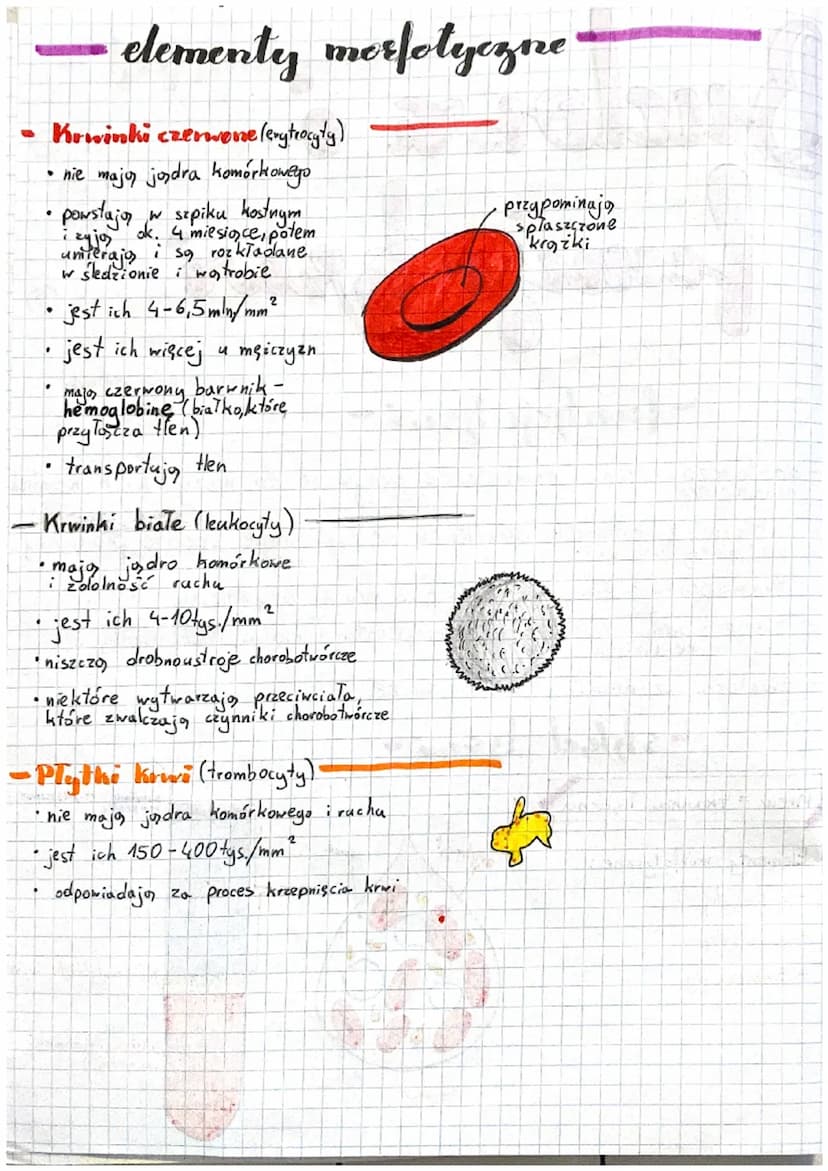 elementy morfotyczne
- Krwinki czerwone (erytrocyty)
• nie mają jądra komórkowego
• powstają w szpiku kostnym
i żyją ok. 4 miesiące, potem
umierają i są rozkładane
w śledzionie i wątrobie
przypominają
spłaszczone
krążki
• jest ich 4-6,5 mln/mm²
• jest ich więcej u mężczyzn
• mają czerwony barwnik -
hemoglobinę (białko, które
przyłącza tlen)
• transportują tlen
- Krwinki białe (leukocyty)
• mają jądro komórkowe
i zdolność ruchu
• jest ich 4-10 tys./mm²
• niszczą drobnoustroje chorobotwórcze
• niektóre wytwarzają przeciwciała,
które zwalczają czynniki chorobotwórcze
- Płytki krwi (trombocyty)
• nie mają jądra komórkowego i ruchu
• jest ich 150-400 tys./mm²
• odpowiadają za proces krzepnięcia krwi